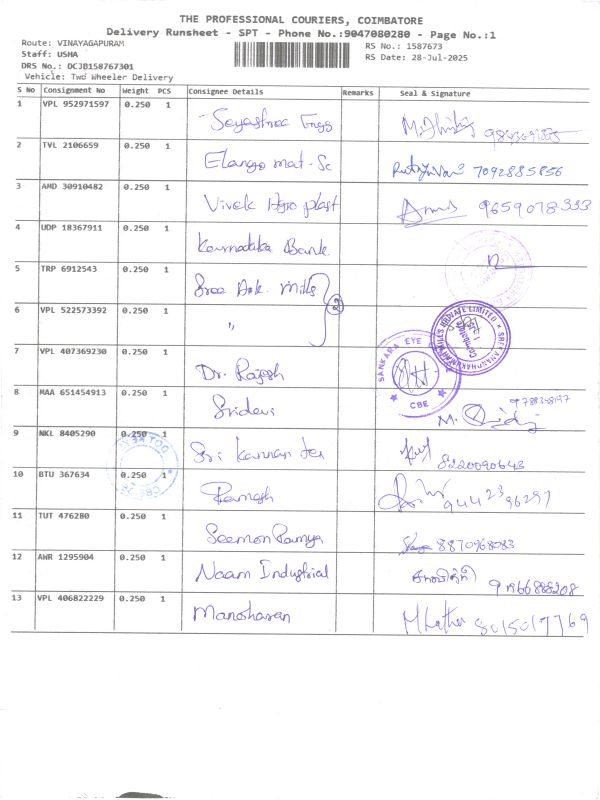 THE PROFESSIONAL COURIERS, COIMBATORE
Delivery Runsheet - SPT - Phone No.:9047080280 - Page No.:1
Route: VINAYAGAPURAM
Staff: USHA
DRS No.: DCJB158767301
Vehicle: Two Wheeler Delivery
RS No.: 1587673
RS Date: 28-Jul-2025
S No Consignment No Weight PCS Consignee Details Remarks Seal & Signature
1 VPL 952971597 0.250 1
2 TVL 2106659 0.250 1 Elango mat-Sc 7092885856
3 AMD 30910482 0.250 1 Vivek Agro plast 9659078333
4 UDP 18367911 0.250 1 Karnataka Bank
5 TRP 6912543 0.250 1 Sree Ank. Mills
2
6 VPL 522573392 0.250 1 "
7 VPL 407369230 0.250 1 Dr. Rajesh
SANKARA EYE
CBE
8 MAA 651454913 0.250 1 Sridevi
9 NKL 8405290 0.250 1 Sri Kannan tex 8220090643
10 BTU 367634 0.250 1 Ramesh 9442396297
11 TUT 476280 0.250 1 Seemon Ramya 8870968083
12 AWR 1295904 0.250 1 Naam Industrial
13 VPL 406822229 0.250 1 Manoharan 8015017769